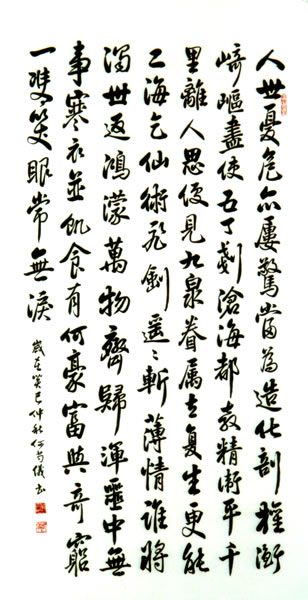 人世憂危亦屢驚當為造化剖權衡
崎嶇盡使五丁剗滄海都教精衛平千
里離人思便見九泉眷屬立復生更能
海乞仙術飛劍遥〻斬薄情誰將
濁世返鴻濛萬物齊歸渾噩中無
事寒衣並飢食有何豪富與奇窮
一雙笑眼常無淚
歲在癸巳仲秋何儀書